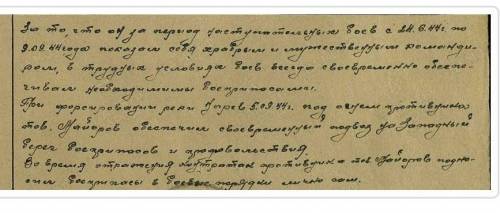 За то, что он за период наступательных боев с 24.6.44г по
9.09.44 года показал себя храбрым и мужественным команди-
ром, в трудных условиях боев всегда своевременно обеспе-
чивал необходимыми боеприпасами.
При форсировании реки 5.09.44г. под огнем противника
тов. Майоров обеспечил своевременный подвоз на Западный
берег боеприпасов и продовольствия.
Во время отражения контратак противника тов Майоров подно-
сил боеприпасы в боевые порядки лично сам.